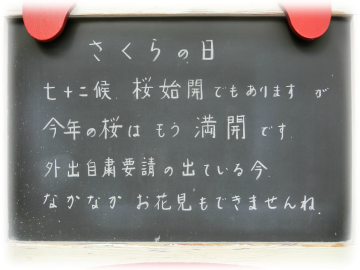 さくらの日
七十二候 桜始開 でもあります が
今年の桜は もう 満開 です
外出自粛要請の出ている今
なかなか お花見もできませんね